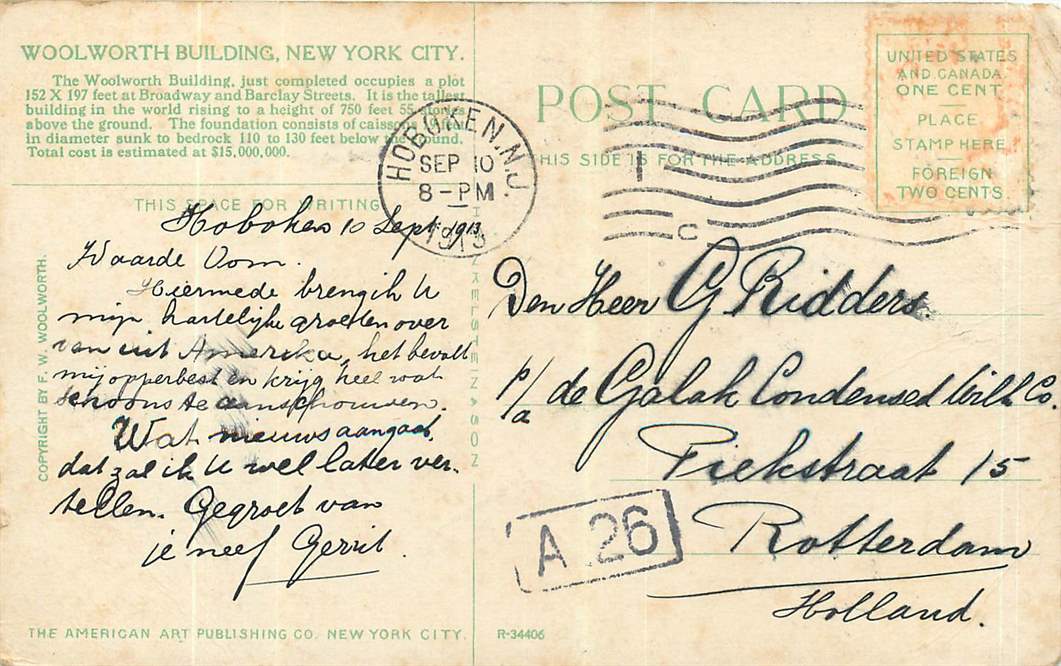 WOOLWORTH BUILDING, NEW YORK CITY.
The Woolworth Building, just completed occupies a plot
152 X 197 feet at Broadway and Barclay Streets. It is the tallest
building in the world rising to a height of 750 feet 55 stories
above the ground. The foundation consists of caissons
in diameter sunk to bedrock 110 to 130 feet below the ground.
Total cost is estimated at $15,000,000.
THIS SPACE FOR WRITING
Hoboken 10 Sept 1913
Waarde Oom.
Hiermede breng ik U
mijn hartelijke groeten over
van uit Amerika, het bevalt
mij opperbest en krijg heel wat
schoons te aanschouwen.
Wat nieuws aangaat,
dat zal ik U wel later ver-
tellen. Gegroet van
je neef Gerrit.
COPYRIGHT BY F. W. WOOLWORTH.
THE AMERICAN ART PUBLISHING CO. NEW YORK CITY.
H. FINKELSTEIN & SON
HOBOKEN, N.J.
SEP 10
8-PM
1913
1
C
POST CARD
THIS SIDE IS FOR THE ADDRESS
UNITED STATES
AND CANADA
ONE CENT
PLACE
STAMP HERE
FOREIGN
TWO CENTS
Den Heer G Ridders.
p/a de Galak Condensed Milk Co.
Piekstraat 15
Rotterdam
Holland.
A 26
R-34406